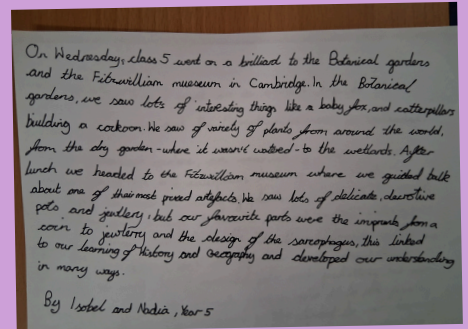 On Wednesday, class 5 went on a brilliard to the Botanical gardens
and the Fitzwilliam museum in Cambridge. In the Botanical
gardens, we saw lots of interesting things like a baby fox, and catterpillars
building a cockoon. We saw of variety of plants from around the world,
from the dry garden - where it wasn't watered - to the wetlands. After
lunch we headed to the Fitzwilliam museum where we guided talk
about one of their most prized artefacts. We saw lots of delicate, decrotive
pots and jewllery, but our favourite parts were the imprints from a
coin to jewterry and the design of the sarcophagus, this linked
to our learning of History and Geography and developed our understanding
in many ways.
By Isobel and Nadia, Year 5